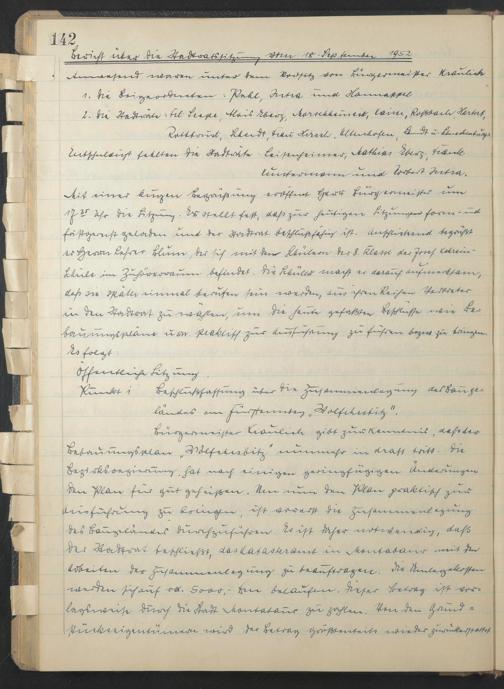 142
Bericht über die Stadtratssitzung vom 18. September 1952
Anwesend waren unter dem Vorsitz von Bürgermeister Kraulich
1. die Beigeordneten: Pehl, und Hannappel
2. die Stadträte:
Entschuldigt fehlten die Stadträte Leisenheimer, Mathias Eberz, Frank
und
Mit einer kurzen Begrüßung eröffnet Herr Bürgermeister um
17 Uhr die Sitzung. Er stellt fest, daß zur heutigen Sitzung form- und
fristgerecht geladen und der Stadtrat beschlußfähig ist. Anschließend begrüßt
er Herrn Lehrer Blum, der sich mit den Schülern der 8. Klasse der
schule im Zuhörerraum befindet. Die Schüler macht er darauf aufmerksam,
daß sie später einmal berufen sein werden, aus ihren Reihen Vertreter
in den Stadtrat zu wählen, um die heute gefaßten Beschlüsse wie Be-
bauungspläne usw. praktisch zur Ausführung zu führen bezw. zu bringen.
Es folgt
Öffentliche Sitzung.
Punkt 1 Beschlußfassung über die Zusammenlegung des Bauge-
ländes am "Wolfetsbitz".
Bürgermeister Kraulich gibt zur Kenntnis, daß der
Bebauungsplan "Wolfetsbitz" nunmehr in Kraft tritt. Die
Bezirksregierung hat nach einigen geringfügigen Änderungen
den Plan für gut geheißen. Um nun den Plan praktisch zur
Ausführung zu bringen, ist vorerst die Zusammenlegung
des Baugeländes durchzuführen. Es ist daher notwendig, daß
der Stadtrat beschließt, das Katasteramt in Montabaur mit den
Arbeiten der Zusammenlegung zu beauftragen. Die Umlegekosten
werden sich auf ca. 5000,- DM belaufen. Dieser Betrag ist vor-
lagsweise durch die Stadt Montabaur zu zahlen. Von den Grund-
stückseigentümern wird der Betrag größtenteils wieder zurückerstattet